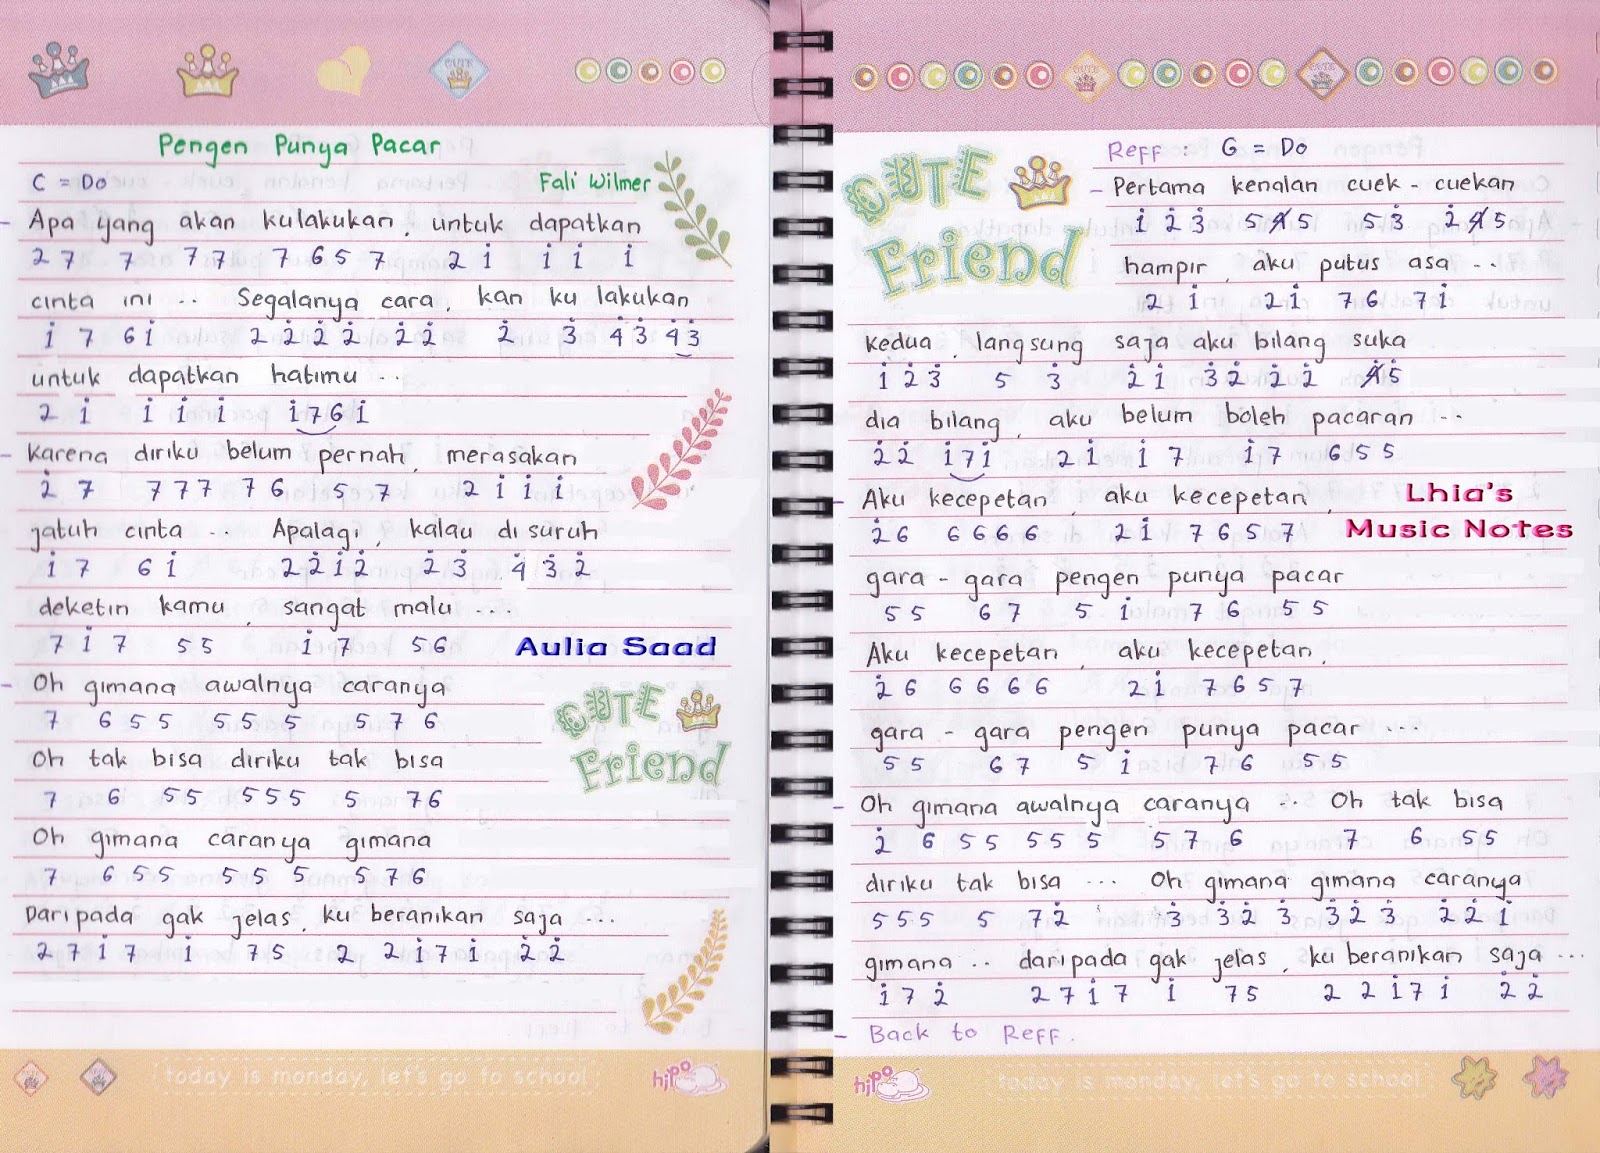 Pengen Punya Pacar
C = Do Fali Wilmer
- Apa yang akan kulakukan, untuk dapatkan
2 7 7 7 7 7 6 5 7 2 i̇ i̇ i̇ i̇
cinta ini .. Segalanya cara, kan ku lakukan
1̇ 7 6 1̇ 2̇ 2̇ 2̇ 2̇ 2̇ 2̇ 2̇ 3̇ 4̇ 3̇ 4̇ 3̇
untuk dapatkan hatimu ..
2 1̇ 1̇ 1̇ 1̇ 1̇ 7 6 1̇
- Karena diriku belum pernah, merasakan
2̇ 7 7 7 7 7 6 5 7 2 1̇ 1̇ 1̇
jatuh cinta .. Apalagi, kalau di suruh
1̇ 7 6 1̇ 2̇ 2̇ 1̇ 2̇ 2̇ 3̇ 4̇ 3̇ 2̇
deketin kamu, sangat malu ...
7 1̇ 7 5 5 1̇ 7 5 6
Aulia Saad
- Oh gimana awalnya caranya
7 6 5 5 5 5 5 5 7 6
Oh tak bisa diriku tak bisa
7 6 5 5 5 5 5 5 7 6
Oh gimana caranya gimana
7 6 5 5 5 5 5 5 7 6
Daripada gak jelas, ku beranikan saja ...
2 7 1̇ 7 1̇ 7 5 2 2 1̇ 7 1̇ 2̇ 2̇
CUTE
Friend
today is monday, let's go to school
hipo
CUTE
Friend
Reff : G = Do
- Pertama kenalan cuek - cuekan
1̇ 2̇ 3̇ 5 4 5 5 3̇ 2̇ 4 5
hampir, aku putus asa ..
2 1̇ 2 1̇ 7 6 7 1̇
kedua, langsung saja aku bilang suka
1̇ 2̇ 3̇ 5 3̇ 2̇ 1̇ 3̇ 2̇ 2̇ 2̇ 4 5
dia bilang, aku belum boleh pacaran ...
2̇ 2̇ 1̇ 7 1̇ 2 1̇ 1̇ 7 1̇ 7 6 5 5
- Aku kecepetan, aku kecepetan,
2̇ 6 6 6 6 6 2 1̇ 7 6 5 7
Lhia's
Music Notes
gara - gara pengen punya pacar
5 5 6 7 5 1̇ 7 6 5 5
Aku kecepetan, aku kecepetan,
2̇ 6 6 6 6 6 2 1̇ 7 6 5 7
gara - gara pengen punya pacar ...
5 5 6 7 5 1̇ 7 6 5 5
- Oh gimana awalnya caranya .. Oh tak bisa
2̇ 6 5 5 5 5 5 5 7 6 7 6 5 5
diriku tak bisa ... Oh gimana gimana caranya
5 5 5 5 7 2̇ 3̇ 3̇ 2̇ 3̇ 3̇ 2̇ 3̇ 2̇ 2̇ 1̇
gimana .. daripada gak jelas, ku beranikan saja ...
1̇ 7 2̇ 2 7 1̇ 7 1̇ 7 5 2 2 1̇ 7 1̇ 2̇ 2̇
- Back to Reff.
hipo
today is monday, let's go to school